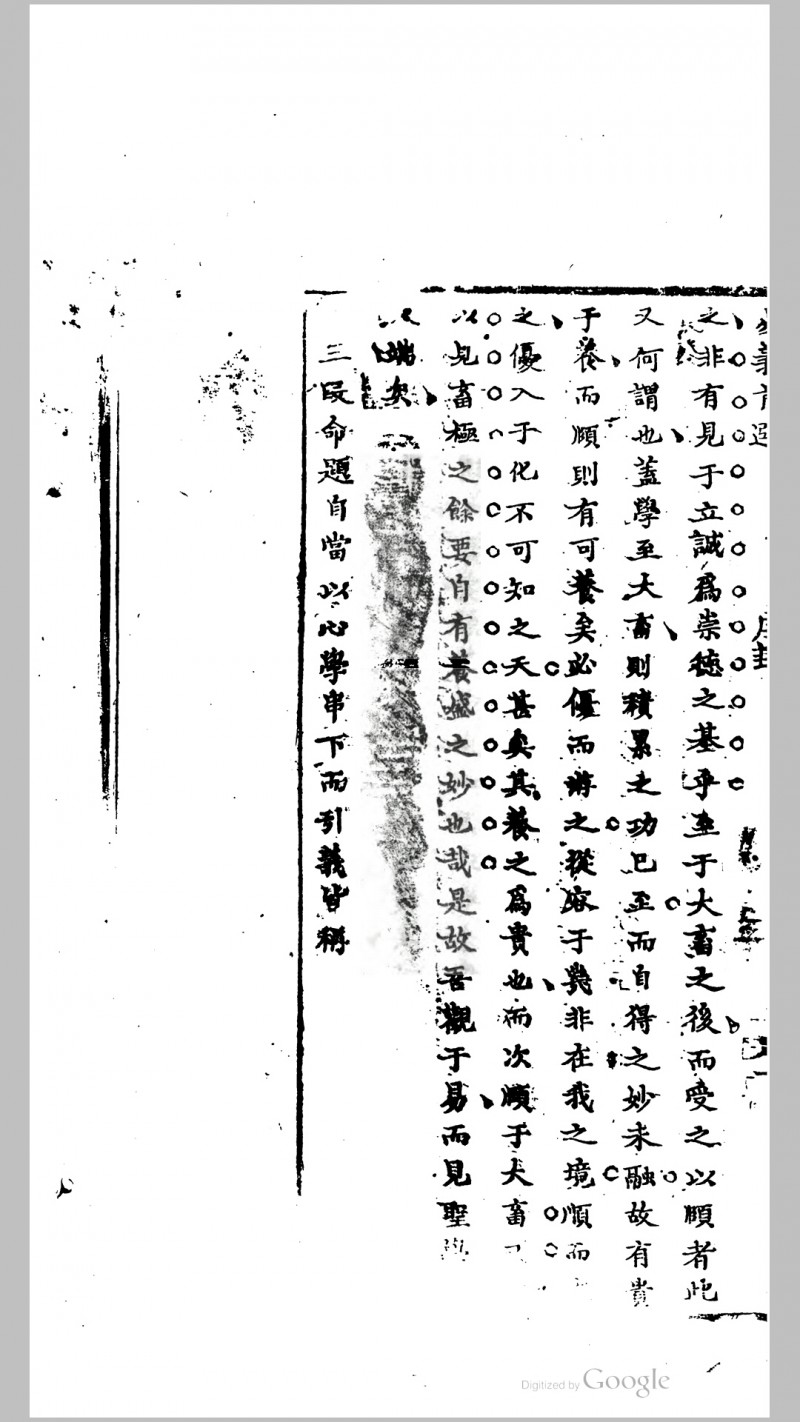 之非有見于立誠爲崇德之基乎至于大畜之後而受之以頤者此
又何謂也蓋學至大畜則積累之功已至而自得之妙未融故有貴
于養而頤則有可養矣必優而游之從容于
非在我之境順而
之優入于化不可知之天甚矣其養之爲貴也而次頤于大畜
以見畜極之餘要自有養盛之妙也哉是故吾觀于易而見聖
端矣
三段命題自當以心學串下而引義皆稱
Digitized by Google